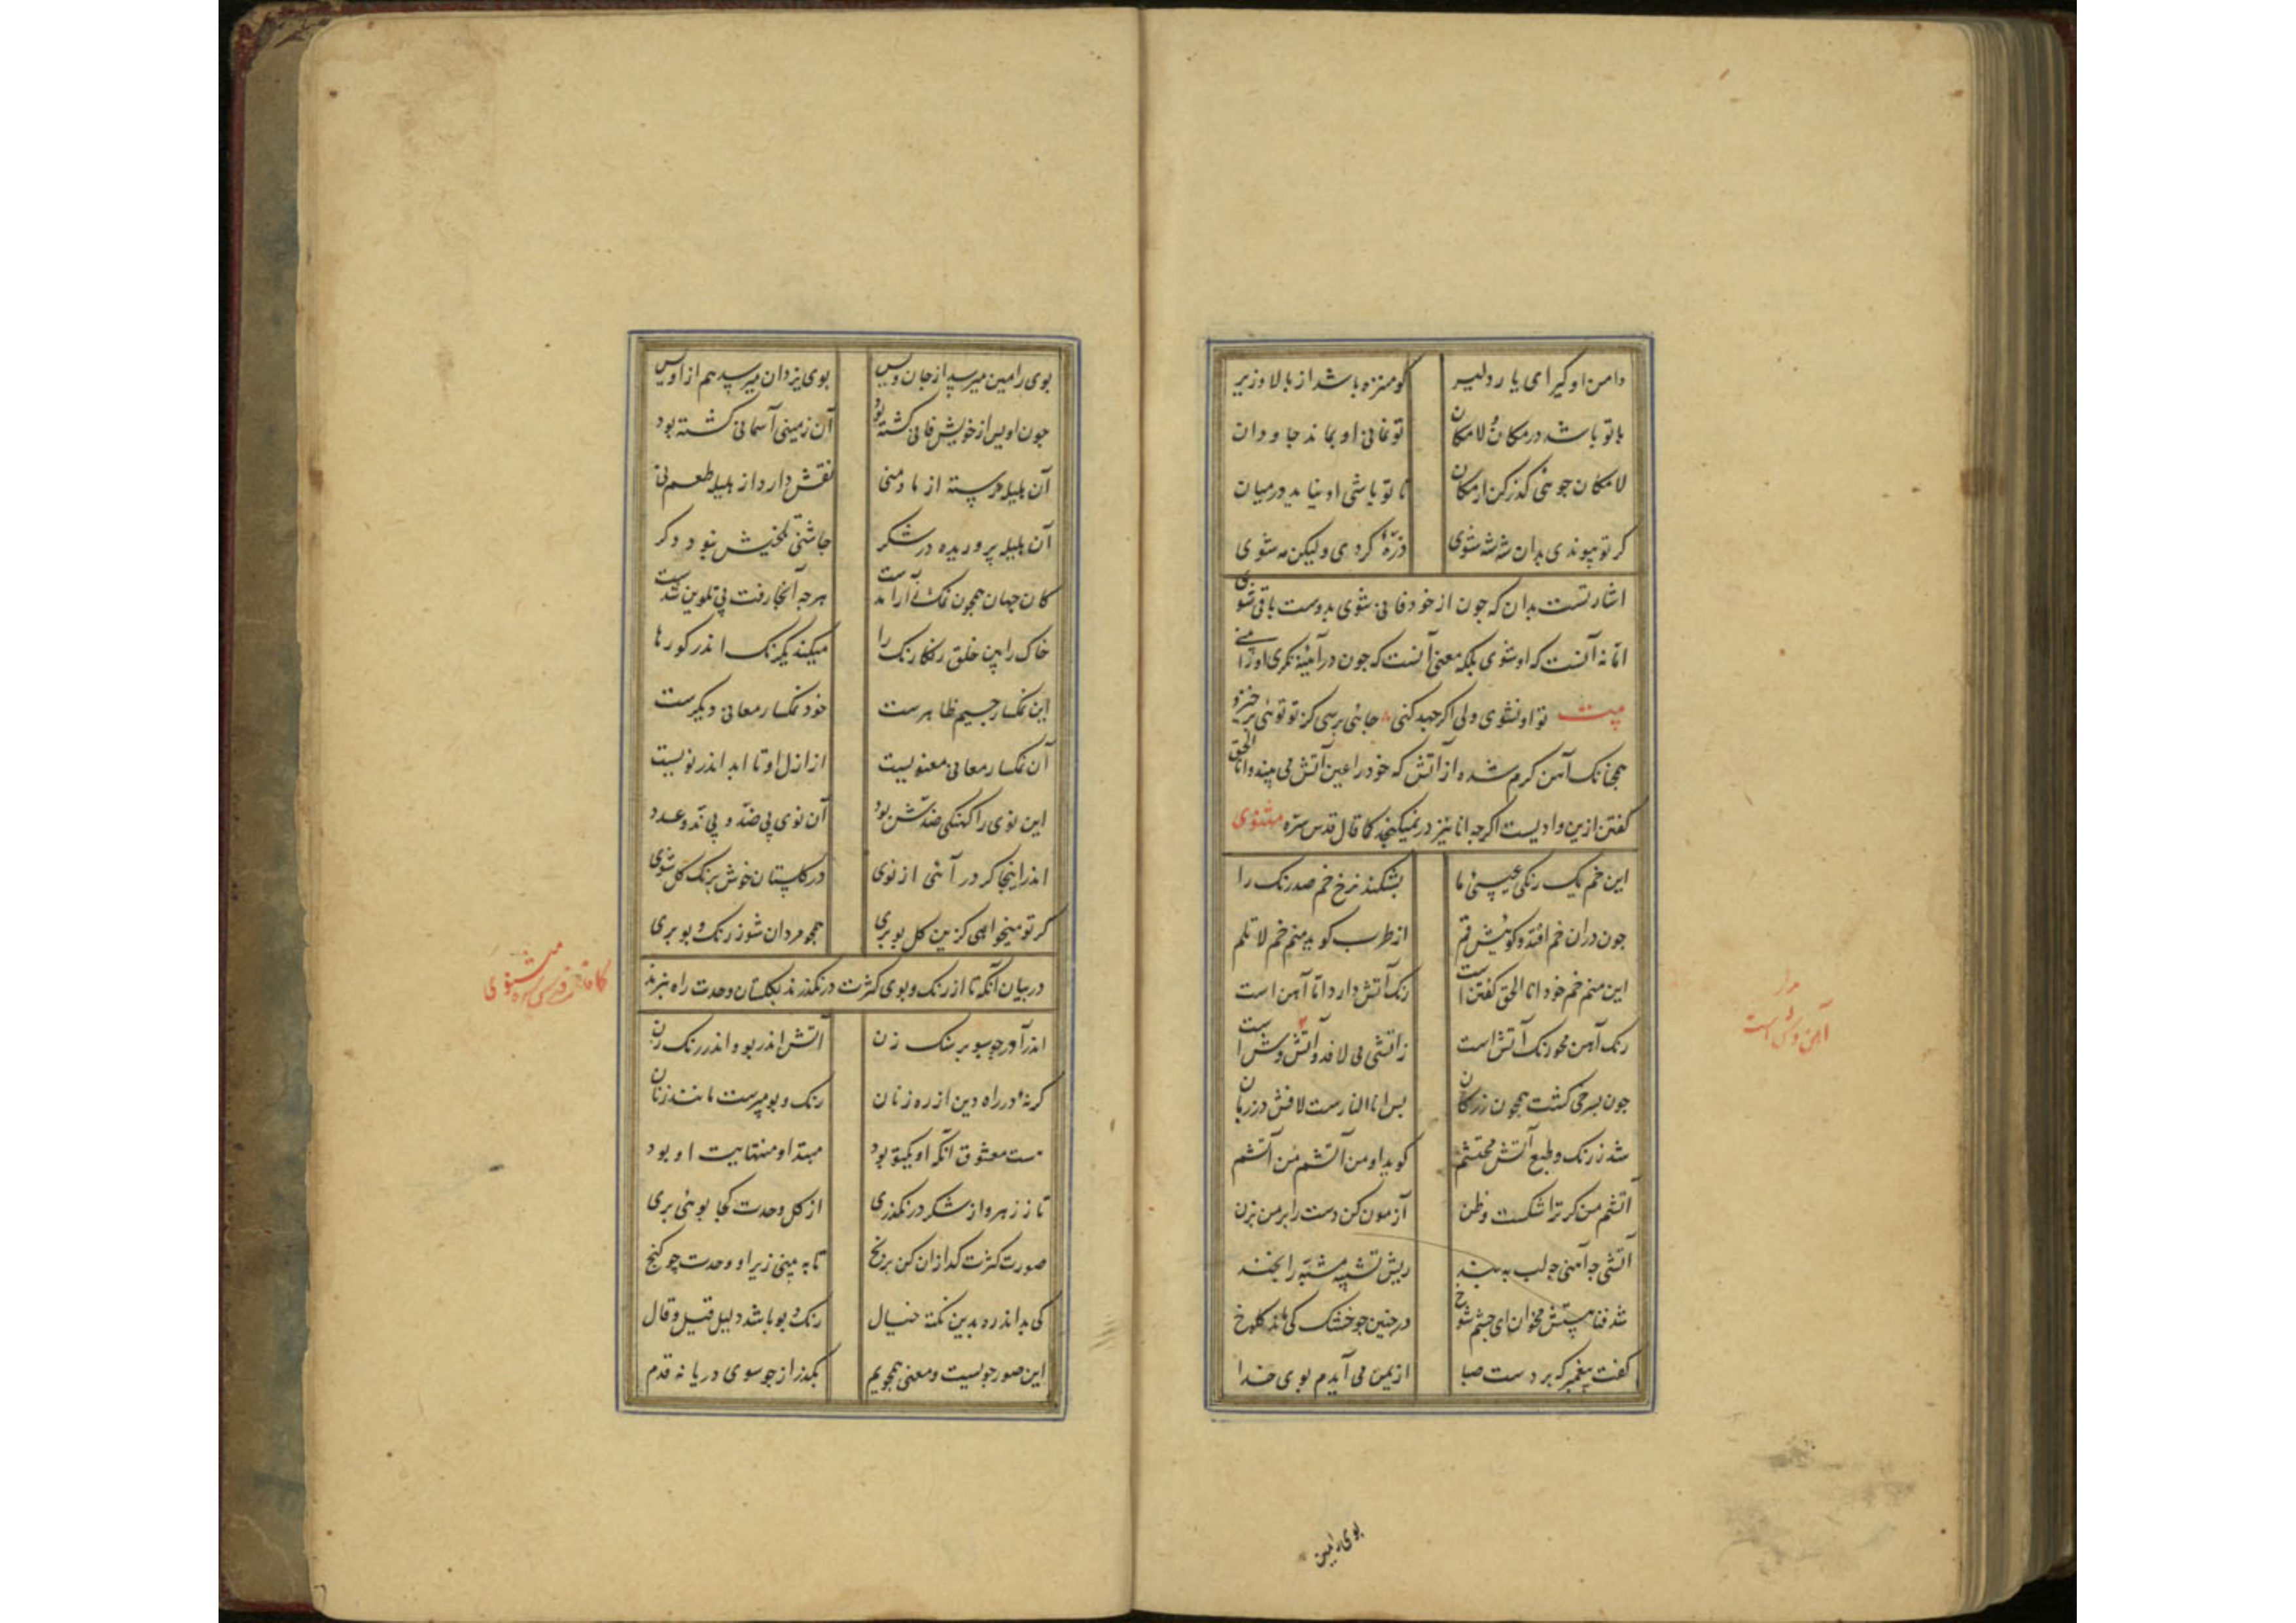 دامن او گیر ای یار دلیر کو منزه باشد از بالا و زیر
با تو باشد در مکان و لامکان تو نمانی او بماند جاودان
لامکان جوئی گذر کن از مکان تا تو باشی او نیاید در میان
کر تو پیوندی بدان شه شه شوی ذرهٔ کردی ولیکن مه شوی
اشارتست بدان که جون از خود فانی شوی بدوست باقی شوی
اما نه آنست که او شوی بلکه معنی آنست که جون در آئینه نکری او را
بیت تو او نشوی ولی اکر جهد کنی جائی برسی کز تو توئی برخیزد
همجانک آهن کرم شده از آتش که خود را عین آتش می بیند و انا الحق
کفتن ازین وادیست اکرجه انا نیز در نمیکنجد کما قال قدس سره مثنوی
این خم یک رنکی عیسیٔ ما بشکند نرخ خم صد رنک را
جون دران خم افتد و کوئیش قم از طرب کوید منم خم لا تلم
این منم خم خود انا الحق کفتن است رنک آتش دارد اما آهن است
رنک آهن محو رنک آتش است ز آتشی می لافد و آتش وش است
جون بسرخی کشت همجون زر کان بس انا النارست لافش در زبان
شد ز رنک و طبع آتش محتشم کوید او من آتشم من آتشم
آتشم من کر ترا شکست و ظن آزمون کن دست را بر من بزن
آتشی جه آهنی جه لب ببند ریش تشبیه مشبه را بخند
شد فنا هستش مخوان ای جشم شوخ در جنین جو خشک کی ماند کلوخ
کفت پیغمبر که بر دست صبا از یمن می آیدم بوی خدا
آهن وش است
بوی رامین
بوی رامین میرسد از جان ویس بوی یزدان میرسد هم از اویس
جون اویس از خویش فانی کشته بود آن زمینی آسمانی کشته بود
آن هلیله رسته از ما و منی نقش دارد از هلیله طعم نی
آن هلیله پروریده در شکر جاشنی تلخیش نبود دکر
کان جهان همجون نمکسار آمدست هرجه آنجا رفت بی تلوین شدست
خاک را بین خلق رنکارنک را میکند یکرنک اندر کورها
این نمکسار جسیم ظاهرست خود نمکسار معانی دیکرست
آن نمکسار معانی معنویست از ازل او تا ابد اندر نویست
این نوی را کهنکی ضدش بود آن نوی بی ضد و بی ند و عدد
اندر اینجا کر در آئی از نوی در کلستان خوش برنک کل شوی
کر تو میخواهی کزین کل بو بری همجو مردان شو ز رنک و بو بری
در بیان آنکه تا از رنک و بوی کثرت در نکذرند بکلستان وحدت راه نبرند
کما قال قدس سره مثنوی
اندر آور جو سبو بر سنک زن آتش اندر بو و اندر رنک زن
کر نهٔ در راه دین از ره زنان رنک و بو مپرست مانند زنان
هست معشوق آنکه او یکتو بود مبتدا و منتهایت او بود
تا ز زهر و از شکر در نکذری از کل وحدت کجا بوئی بری
صورت کثرت کدازان کن برنج تا به بینی زیر او وحدت جو کنج
کی بد اندر ره بدین نکته خیال رنک و بو باشد دلیل قیل و قال
این صور جویست و معنی همجو یم بکذر از جو سوی دریا نه قدم